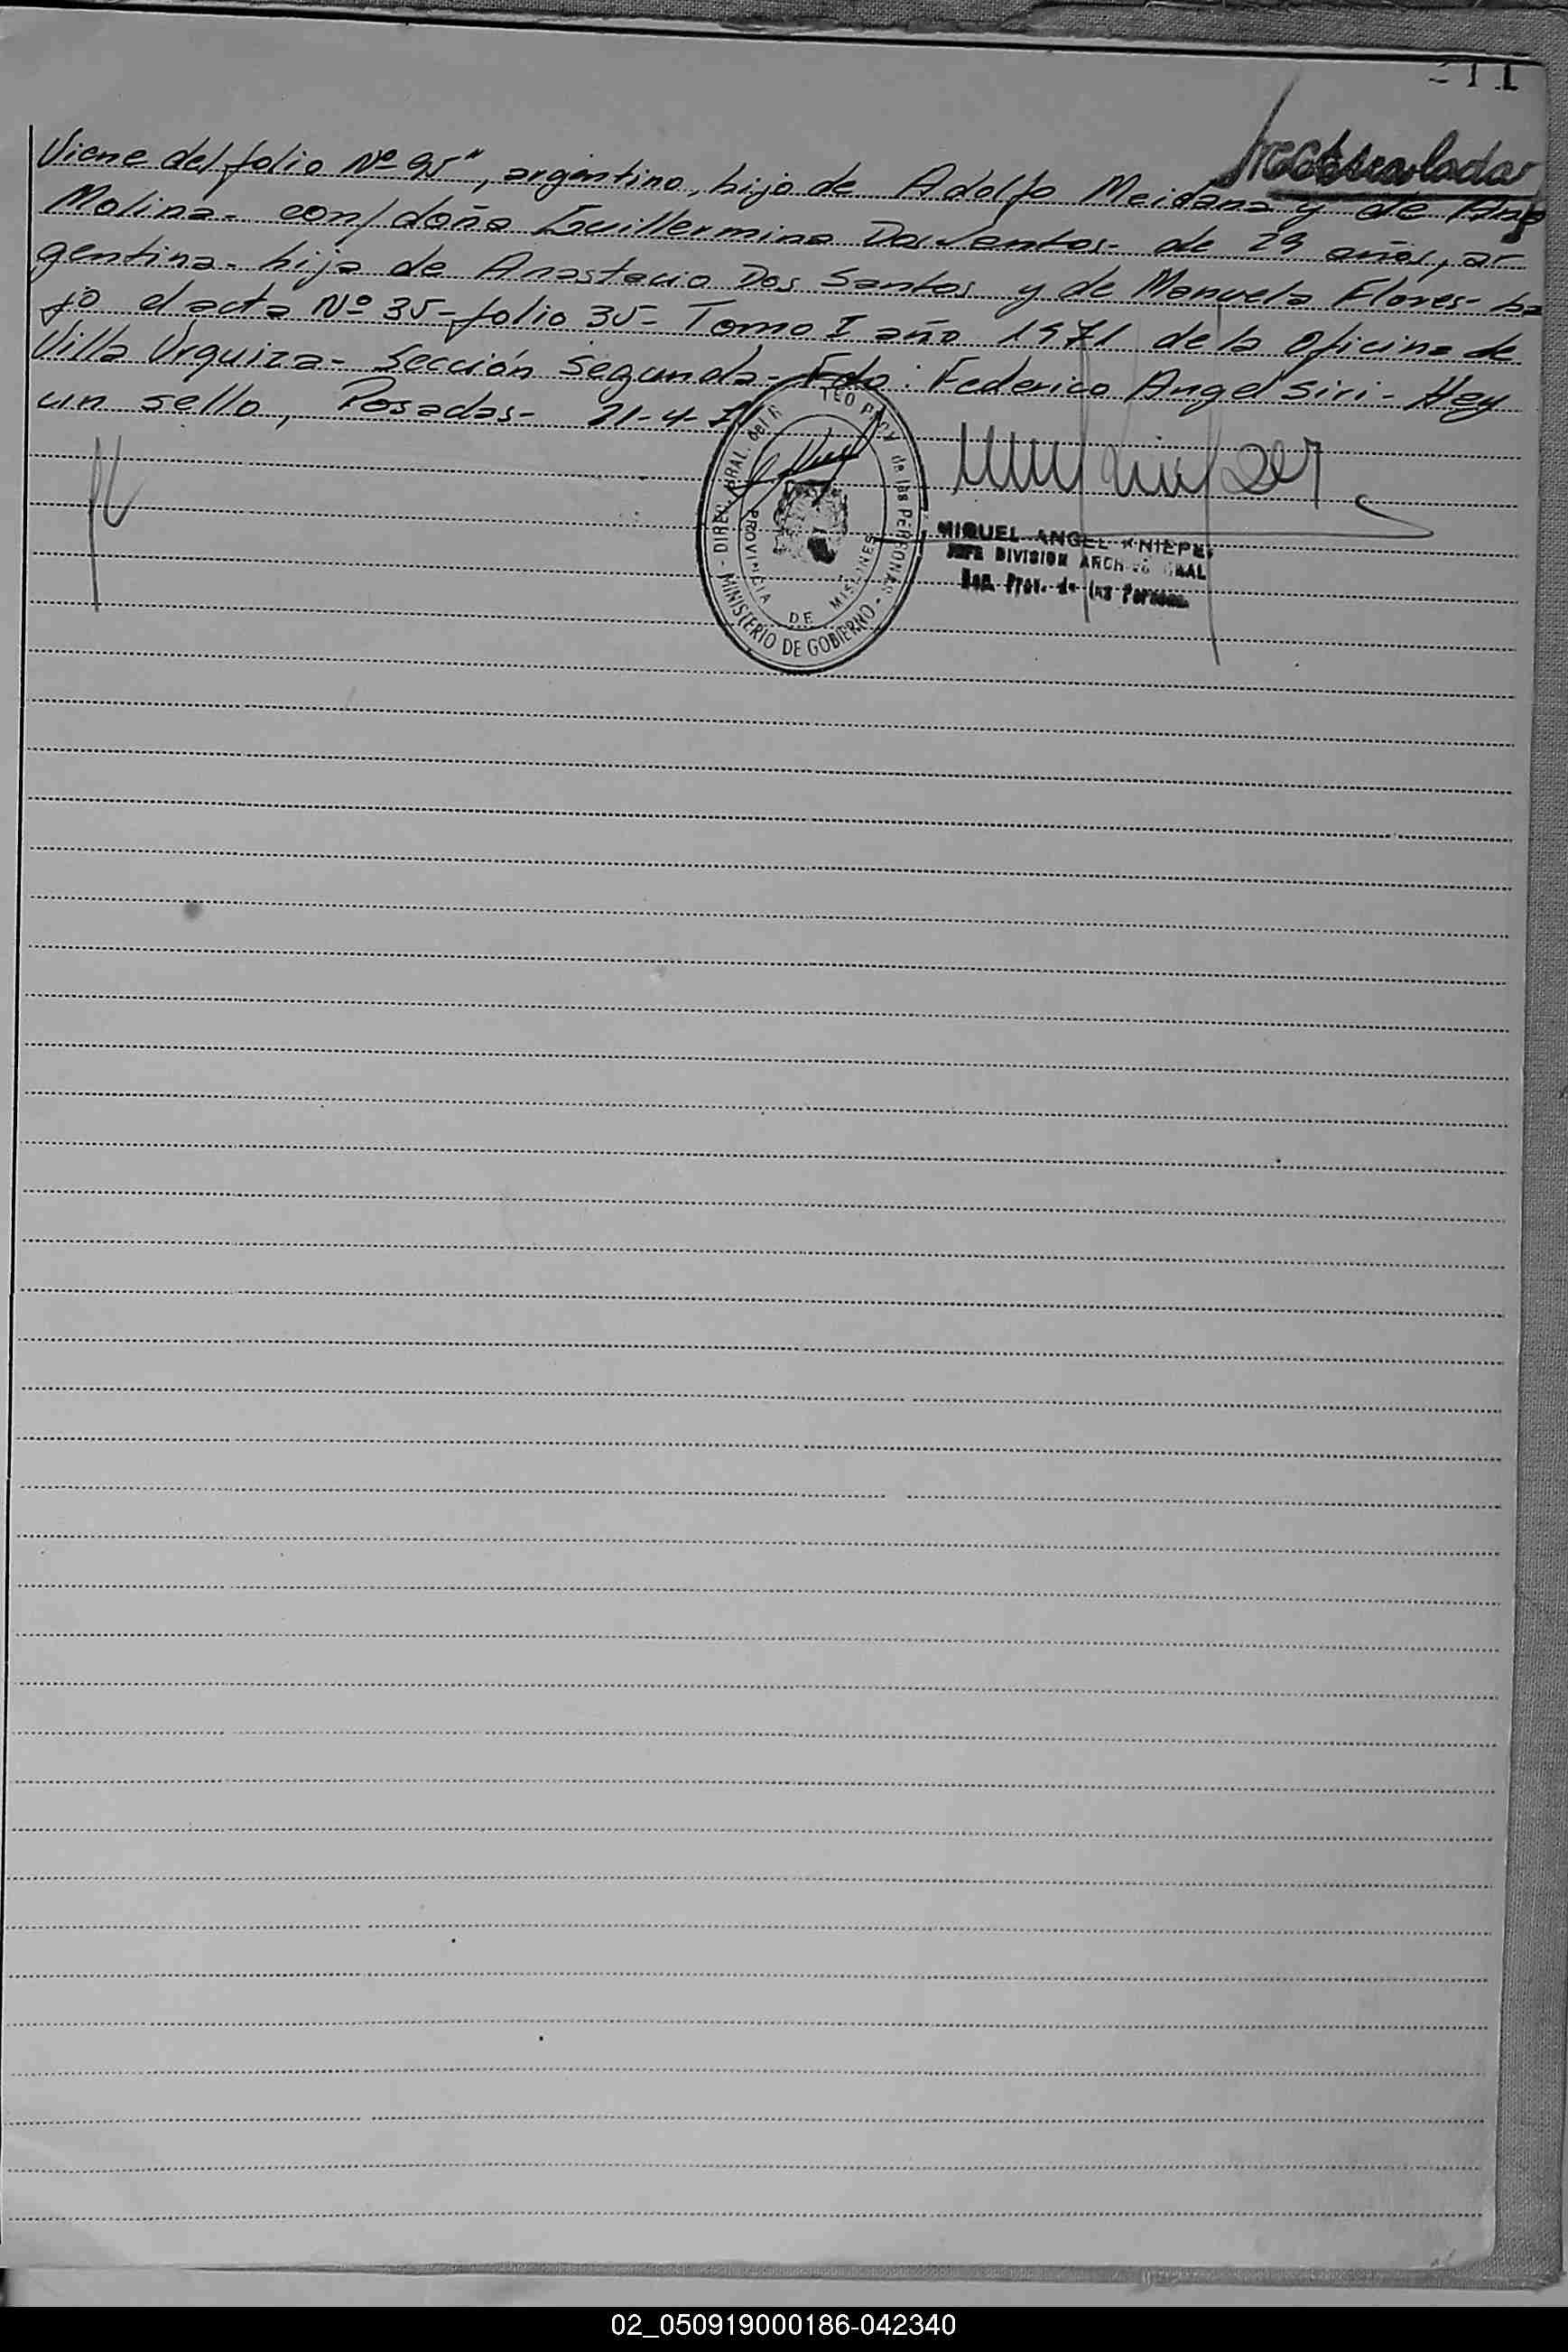 211
Viene del folio Nº 95", argentino, hijo de Adolfo Meidana y de Ana
Molina- con/doña Guillermina Dos Santos- de 29 años, ar
gentina- hija de Anastacio Dos Santos y de Manuela Flores- ba
jo el acta Nº 35- folio 35- Tomo I año 1971 de la Oficina de
Villa Urquiza- Sección Segunda- Fdo: Federico Angel Siri- Hay
un sello, Posadas- 21-4-71
DIREC. GRAL. del de las PERSONAS
PROVINCIA DE MISIONES
MINISTERIO DE GOBIERNO
MIGUEL ANGEL KNIEPE
JEFE DIVISION ARCHIVO GRAL
Prov. de las Personas
02_050919000186-042340